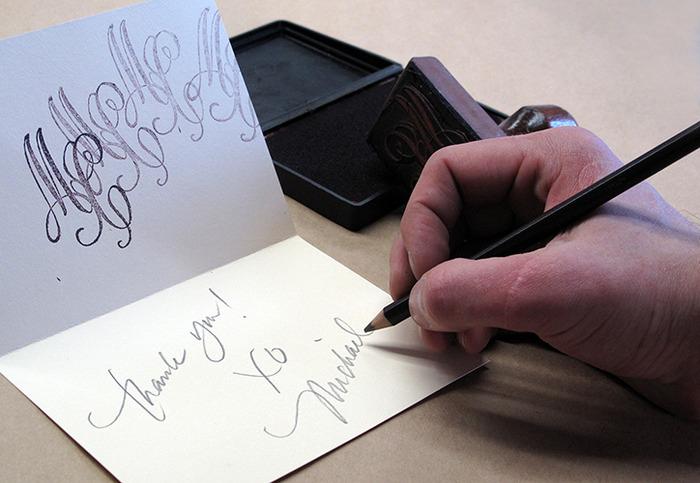 Thank you!
XO
Michael